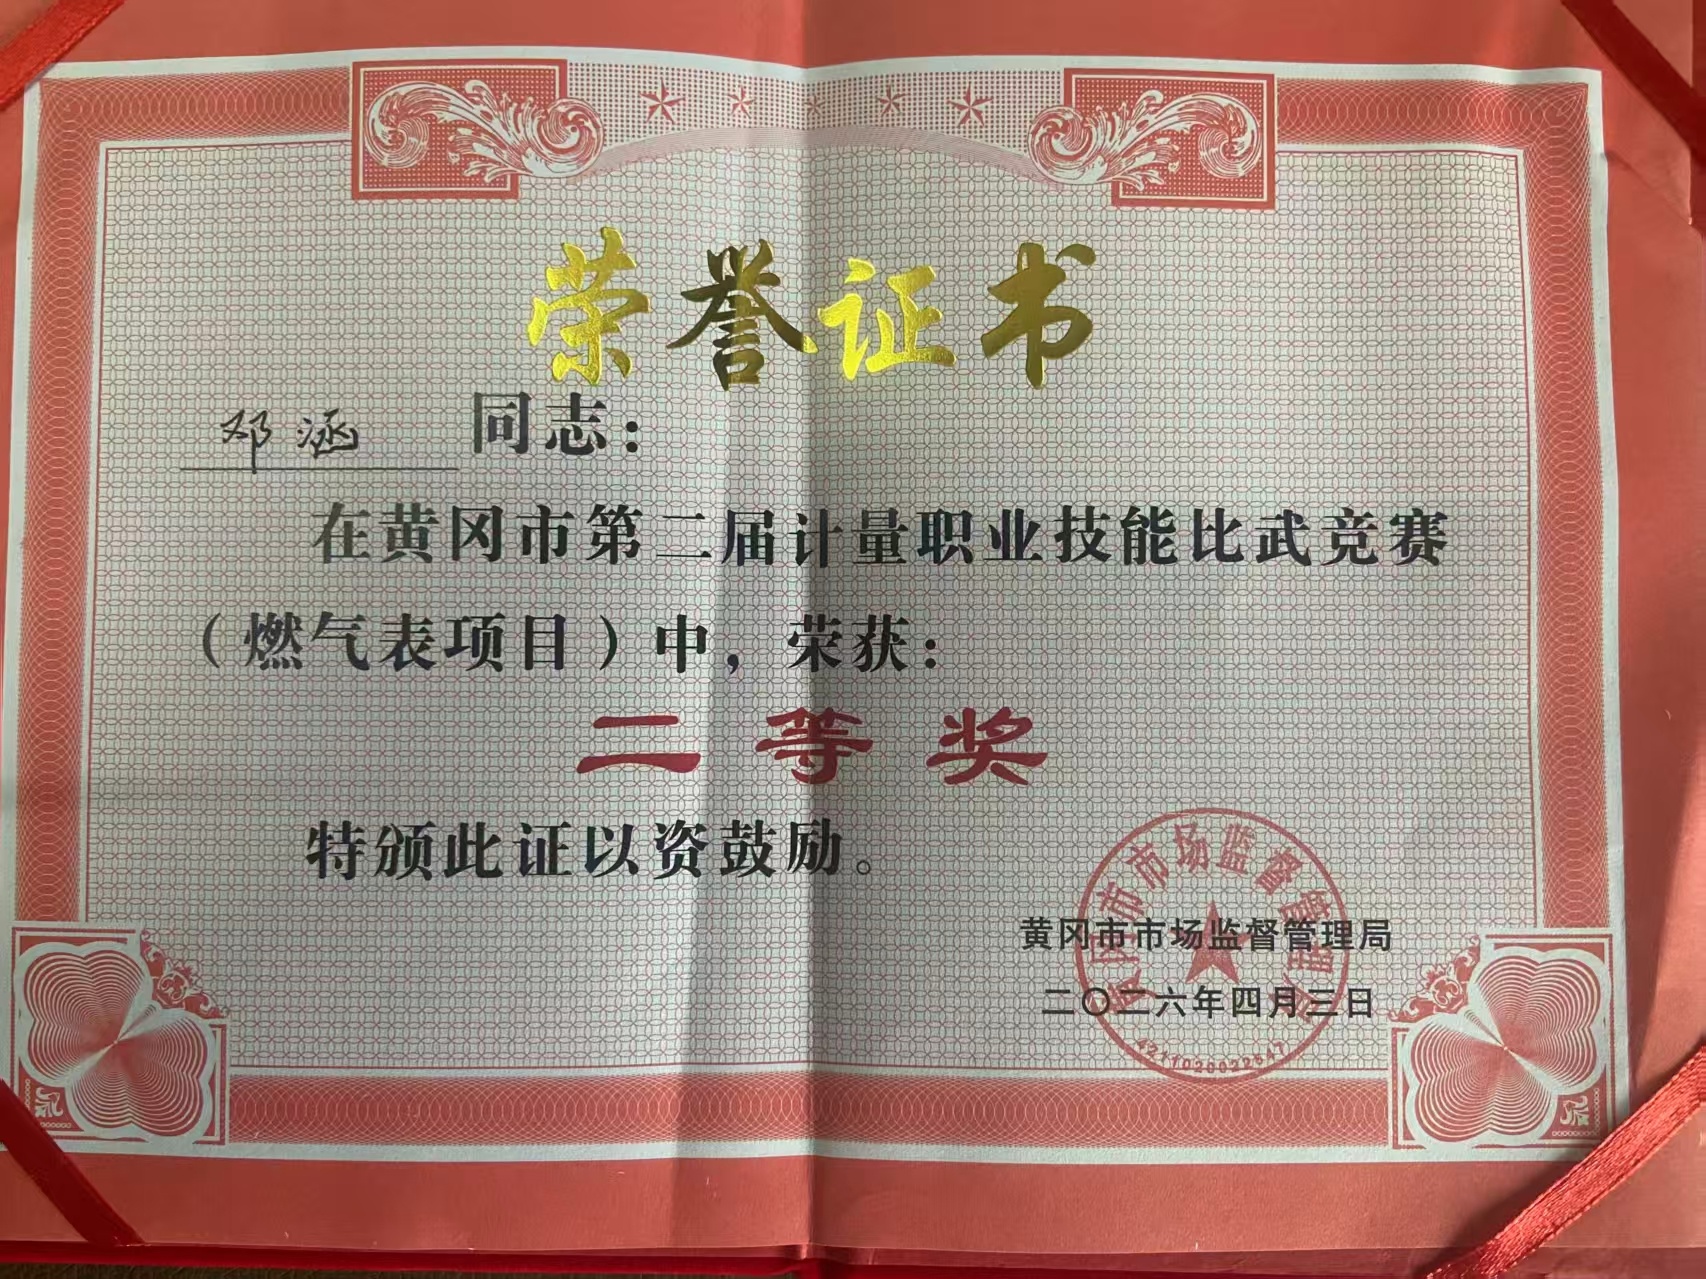 荣誉证书
邓涵 同志：
在黄冈市第二届计量职业技能比武竞赛
（燃气表项目）中，荣获：
二等奖
特颁此证以资鼓励。
黄冈市市场监督管理局
二〇二六年四月三日
黄冈市市场监督管理局
4211020022547